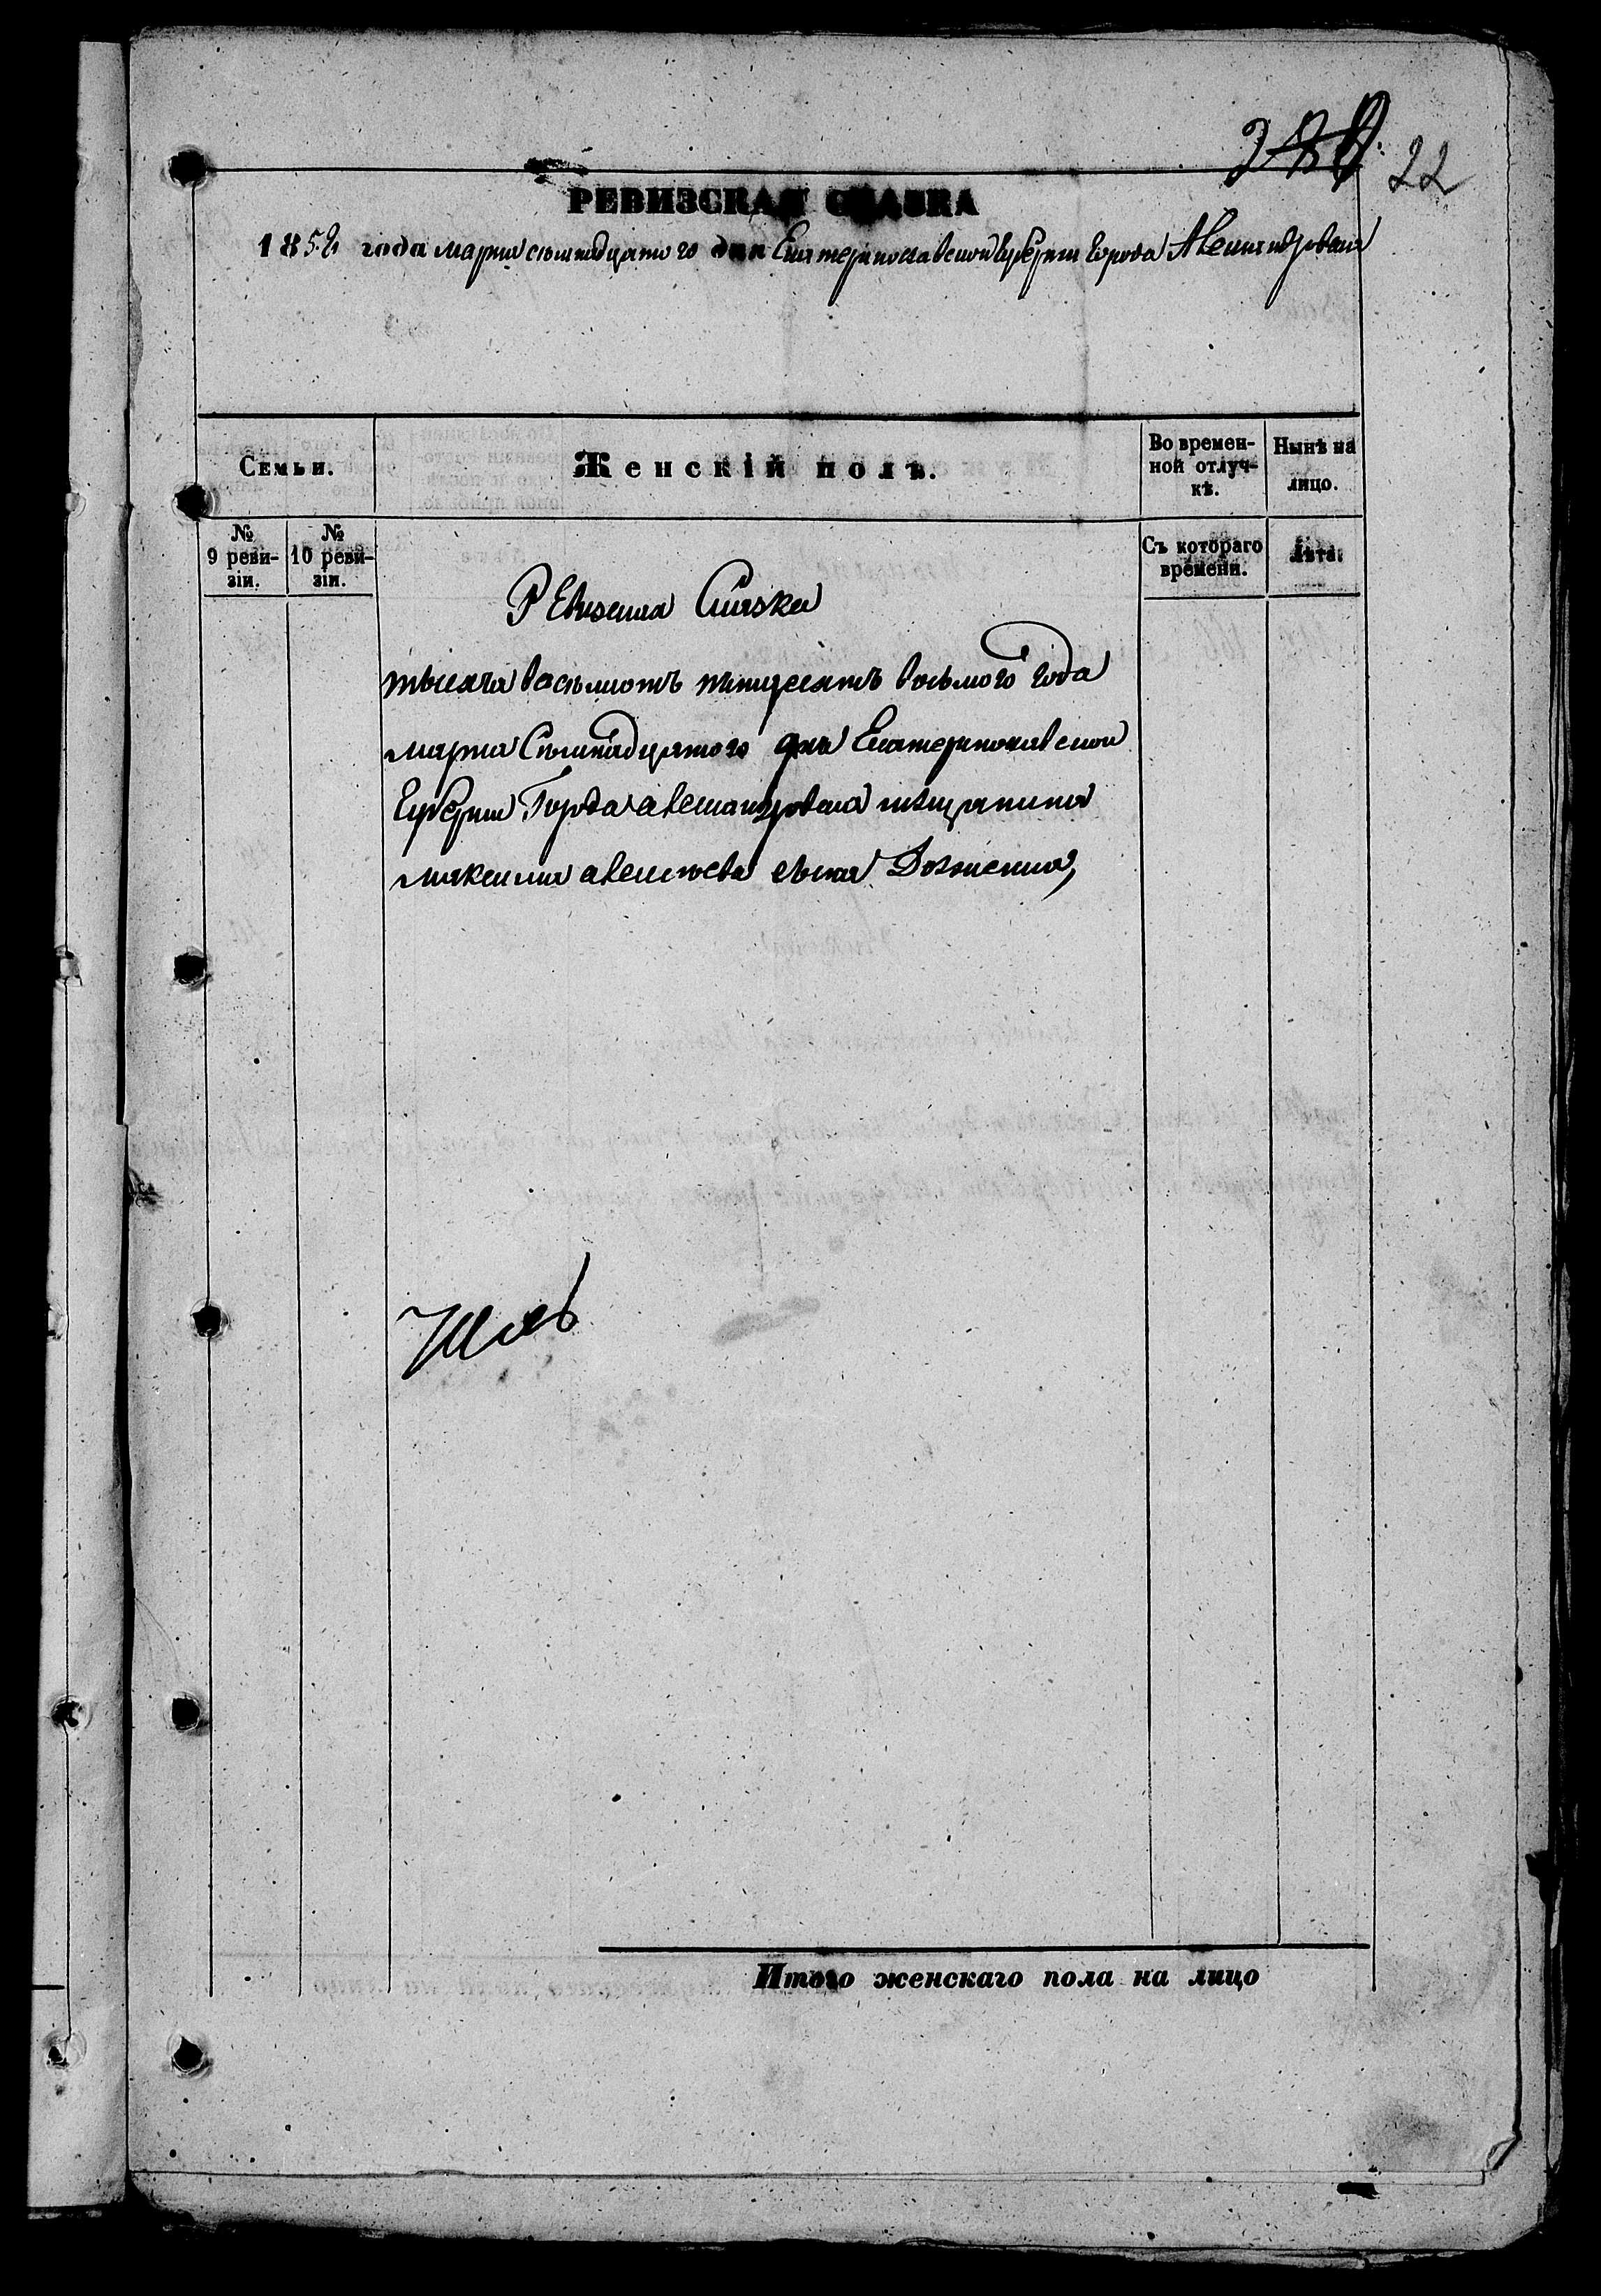 22
РЕВИЗСКАЯ СКАЗКА
1858 года марта семнадцатого дня Екатеринославской Губернии города Александровска
Семьи.
Женскій полъ.
Во времен-
ной отлуч-
кѣ.
Нынѣ на
лицо.
№
9 реви-
зіи.
№
10 реви-
зіи.
Съ котораго
времени.
Лѣта.
Ревизская Сказка
тысяча восемьсотъ пятдесятъ восьмого года
марта Семнадцатого дня Екатеринославской
Губернии Города александровска мещанина
максима алексеева сына
Итого женскаго пола на лицо